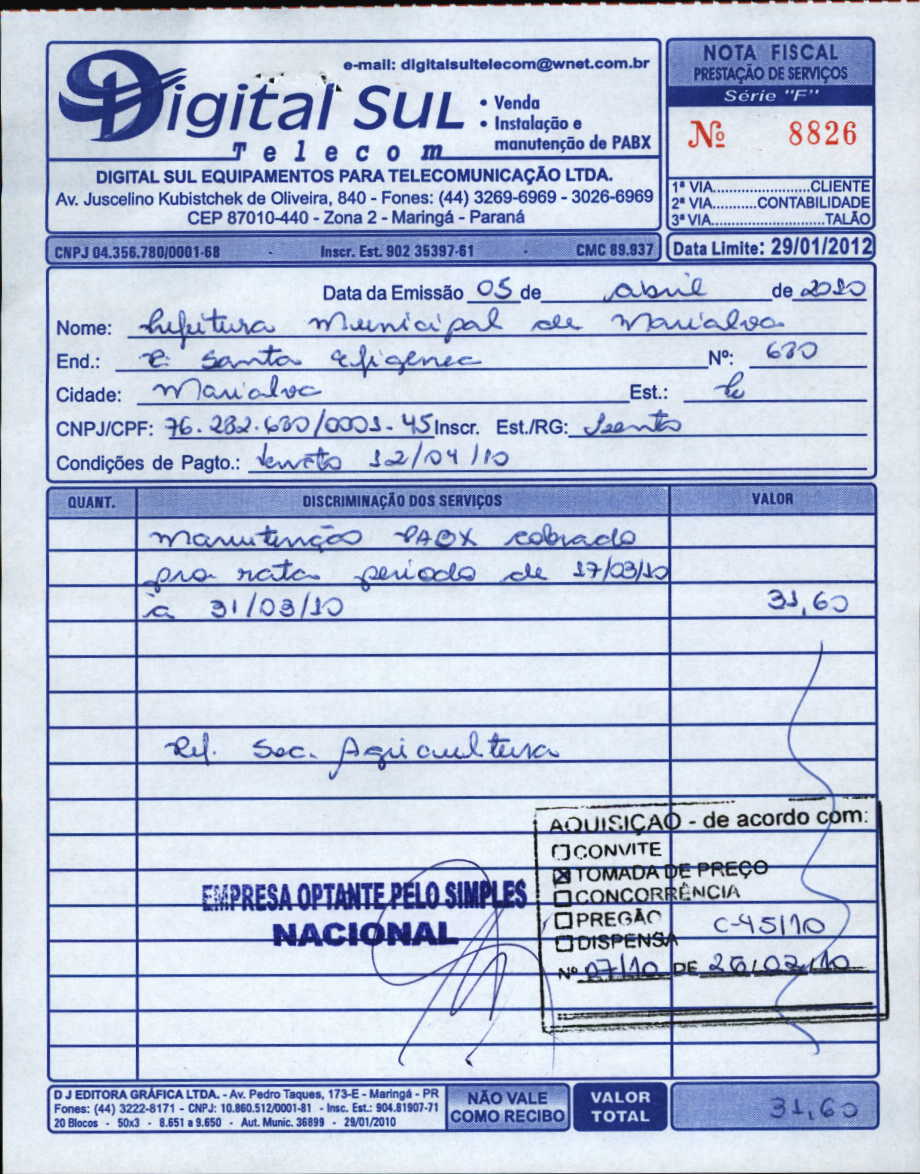 e-mail: digitalsultelecom@wnet.com.br
Digital Sul
Telecom
• Venda
• Instalação e
manutenção de PABX
DIGITAL SUL EQUIPAMENTOS PARA TELECOMUNICAÇÃO LTDA.
Av. Juscelino Kubistchek de Oliveira, 840 - Fones: (44) 3269-6969 - 3026-6969
CEP 87010-440 - Zona 2 - Maringá - Paraná
NOTA FISCAL
PRESTAÇÃO DE SERVIÇOS
Série "F"
Nº 8826
1ª VIA.......................CLIENTE
2ª VIA..........CONTABILIDADE
3ª VIA..........................TALÃO
CNPJ 04.356.780/0001-68 - Inscr. Est. 902 35397-61 - CMC 89.937
Data Limite: 29/01/2012
Data da Emissão 05 de abril de 2010
Nome: Prefeitura Municipal de Marialva
End.: R. Santa Efigenea Nº: 680
Cidade: Marialva Est.: Pr
CNPJ/CPF: 76.282.680/0001-45 Inscr. Est./RG: Isento
Condições de Pagto.: Vencto 12/04/10
QUANT. DISCRIMINAÇÃO DOS SERVIÇOS VALOR
Manutenção PABX cobrado
pro rata periodo de 17/03/10
à 31/03/10 31,60
Ref. Sec. Agricultura
AQUISIÇÃO - de acordo com:
CONVITE
TOMADA DE PREÇO
CONCORRÊNCIA
PREGÃO C-45/10
DISPENSA
Nº 07/10 DE 26/02/10
EMPRESA OPTANTE PELO SIMPLES
NACIONAL
D J EDITORA GRÁFICA LTDA. - Av. Pedro Taques, 173-E - Maringá - PR
Fones: (44) 3222-8171 - CNPJ: 10.860.512/0001-81 - Insc. Est.: 904.81907-71
20 Blocos - 50x3 - 8.651 a 9.650 - Aut. Munic. 36899 - 29/01/2010
NÃO VALE
COMO RECIBO
VALOR
TOTAL
31,60